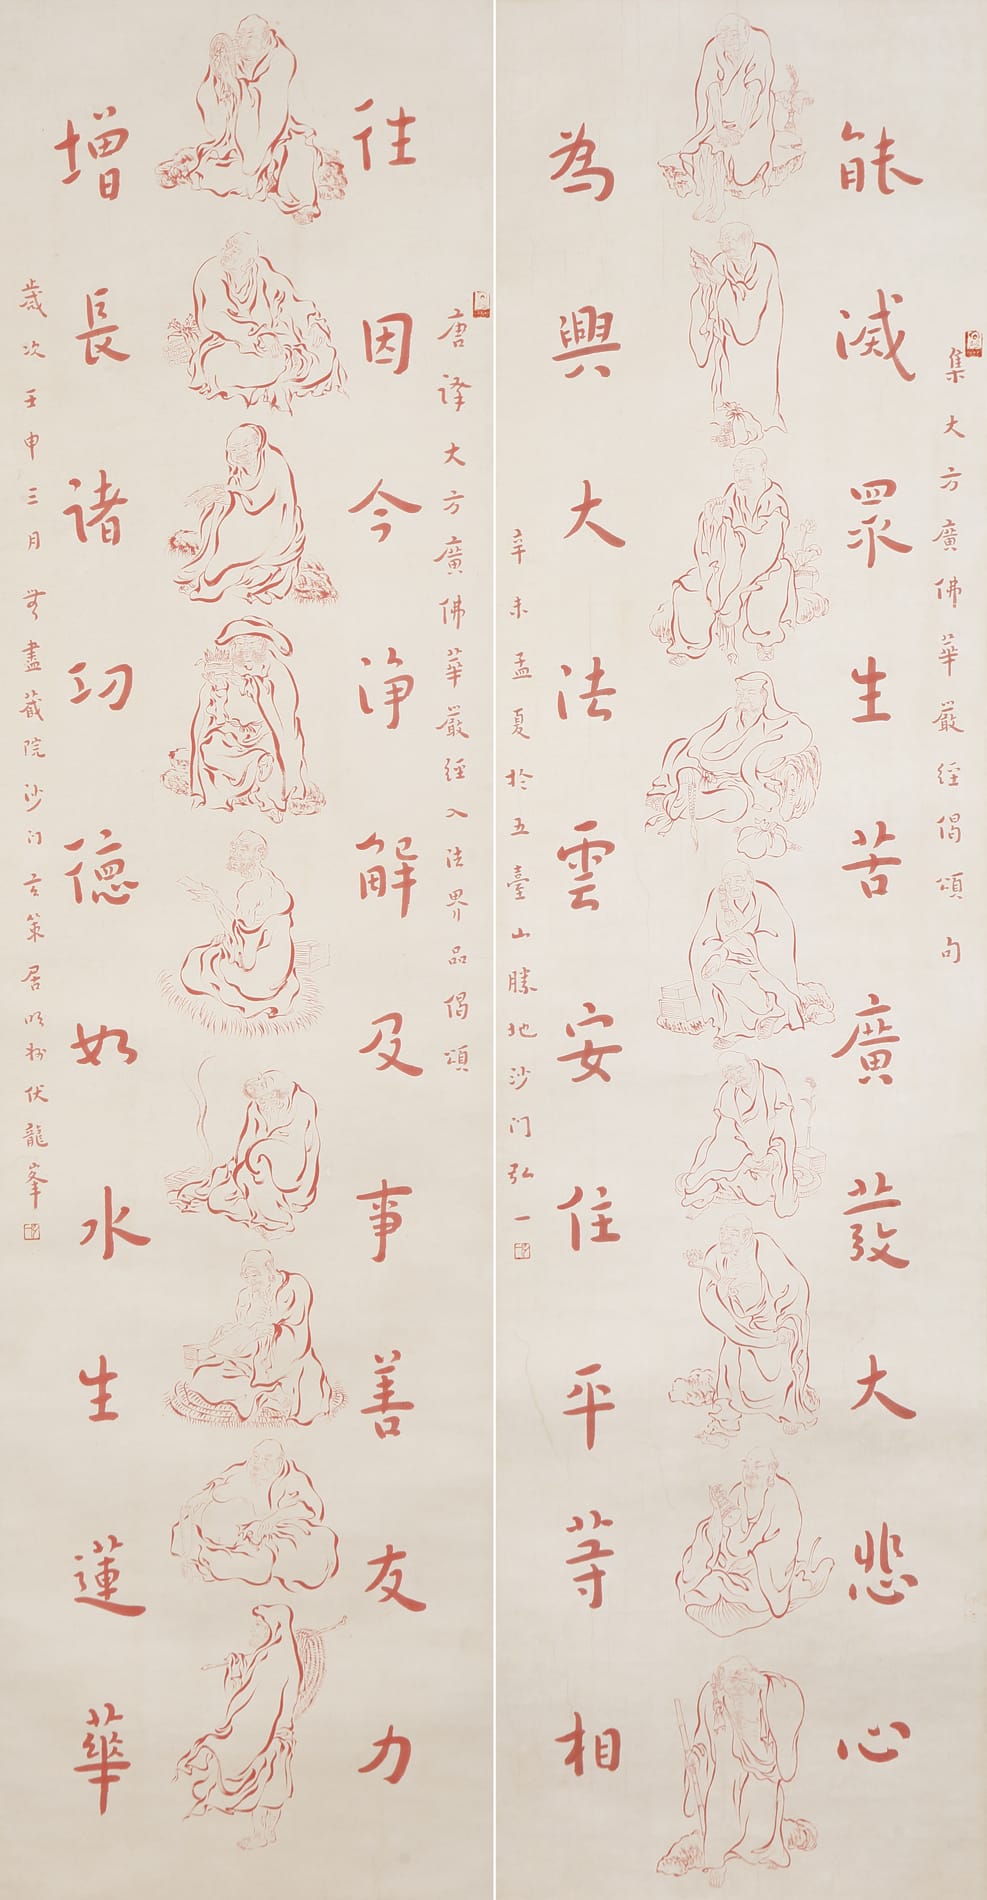 集大方廣佛華嚴經偈頌句
能滅眾生苦廣發大悲心
為興大法雲安住平等相
辛未孟夏扵五臺山勝地沙门弘一
唐译大方廣佛華嚴經入法界品偈頌
往因今净解及事善友力
增長諸功德如水生蓮華
歲次壬申三月無盡藏院沙门玄策居伏龍峯